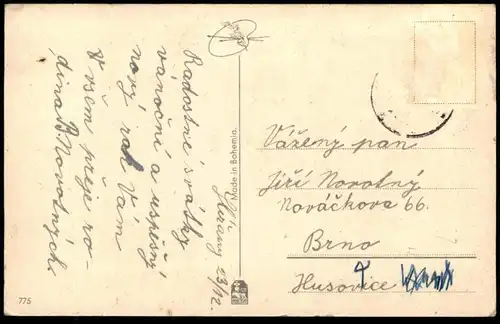 Radostné svátky
vánoční a uspěšný
nový rok Vám
V všem přeje ro-
dina B. Novotných.
23/12.
Made in Bohemia.
Vážený pan
Jiří Novotný
Nováčkova 66.
Brno
Husovice
775